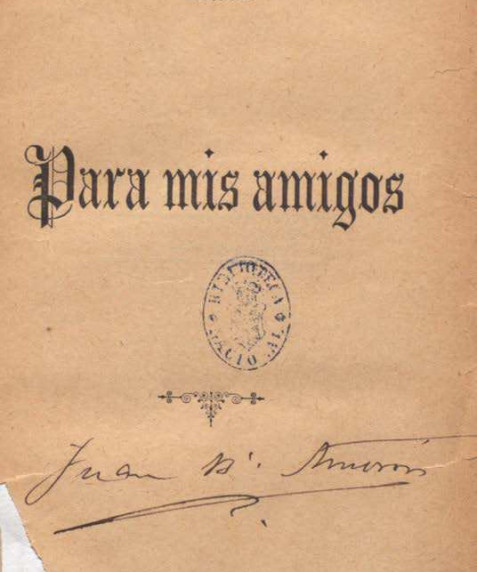 Para mis amigos
BIBLIOTECA
NACIONAL
Juan B. Amorós